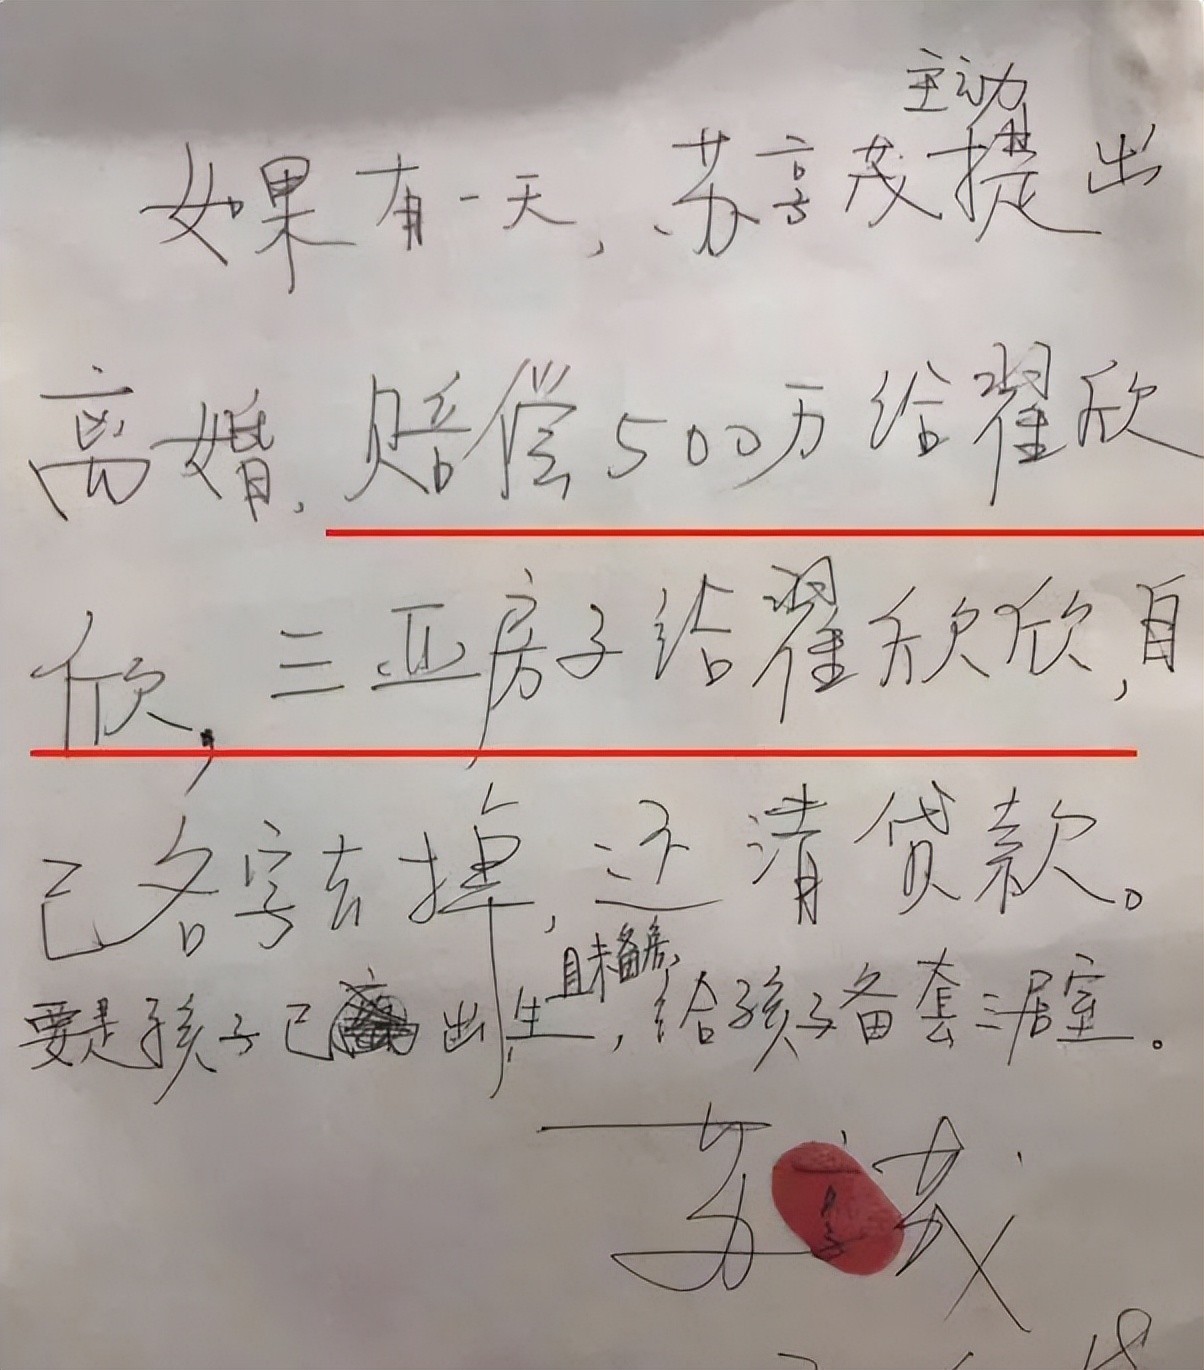 主动
如果有一天,苏享茂提出
离婚,赔偿500万给翟欣
欣,三亚房子给翟欣欣,自
己名字去掉,还清贷款。
且未备房,
要是孩子已出生,给孩子备套三居室。
苏享茂